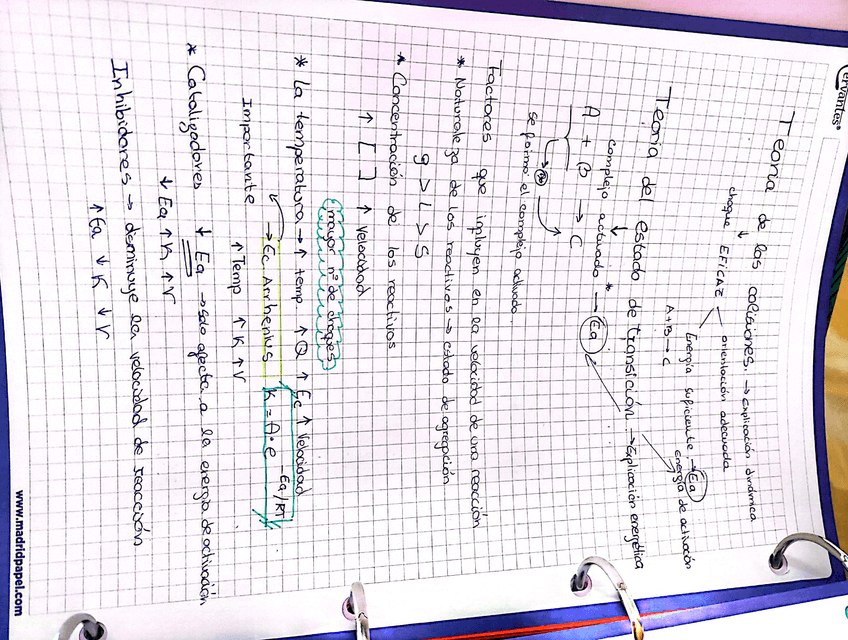 ervantes®
Teoría de las colisiones. → explicación dinámica
↓
choque EFICAZ — orientación adecuada
Energía suficiente → Ea
energía de activación
A+B → C
Teoría del estado de transición → Explicación energética
↓
complejo activado * → Ea
A + B → C
se forma el complejo activado
Factores que influyen en la velocidad de una reacción
* Naturaleza de los reactivos → estado de agregación
g > l > s
* Concentración de los reactivos
↑ [ ] ↑ velocidad
mayor nº de choques
* La temperatura → ↑ temp ↑ Q ↑ Ec ↑ velocidad
Importante → Ec Arrhenius K = A · e -Ea/RT
↑ Temp ↑ K ↑ V
* Catalizadores ↓ Ea → solo afecta a la energía de activación
↓ Ea ↑ K ↑ V
Inhibidores → disminuye la velocidad de reacción
↑ Ea ↓ K ↓ V
www.madridpapel.com